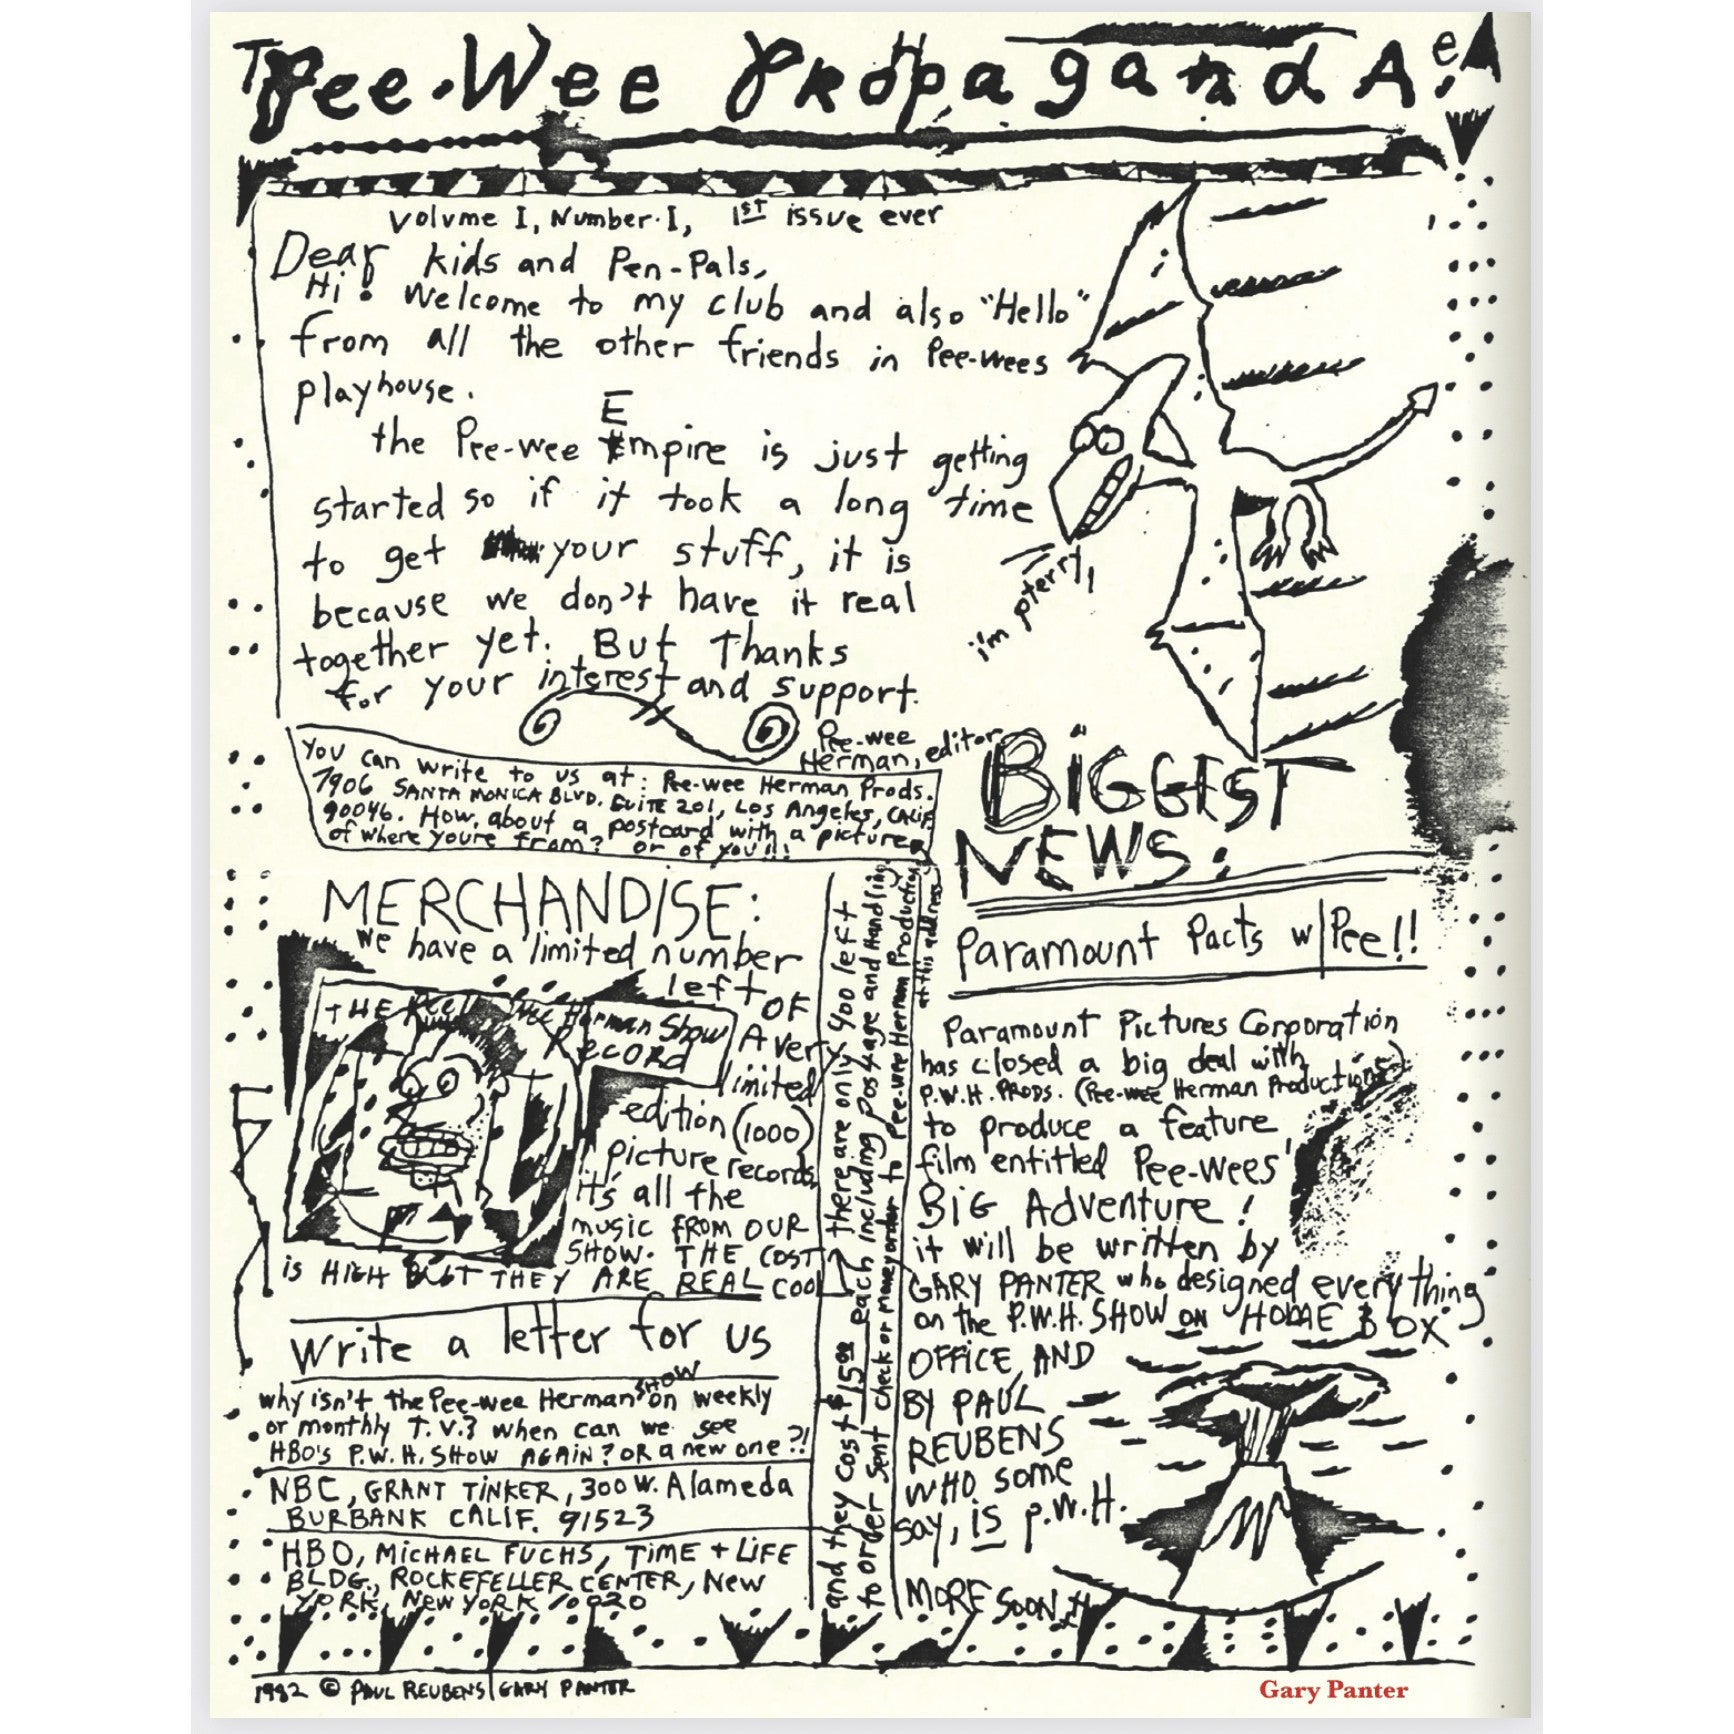 The Pee-Wee PropagandA
Volume I, Number I, 1ST issue ever
Dear kids and Pen-Pals,
Hi! Welcome to my club and also "Hello"
from all the other friends in Pee-wees
playhouse.
the Pee-wee Empire is just getting
started so if it took a long time
to get your stuff, it is
because we don't have it real
together yet. But Thanks
for your interest and support.
Pee-wee
Herman, editor
i'm pterri,
You can write to us at: Pee-wee Herman Prods.
7906 SANTA MONICA BLVD. SUITE 201, Los Angeles, CALIF.
90046. How about a postcard with a picture
of where youre from? or of you!!!
MERCHANDISE:
We have a limited number
left OF
THE Pee Wee Herman Show
RECORD
A very
limited
edition (1000)
picture records
It's all the
music FROM OUR
SHOW. THE COST
is HIGH BUT THEY ARE REAL COOL
there are only 400 left
and they cost $15.00 each including postage and Handling
to order sent check or money order to Pee-wee Herman Productions
at this address
Write a letter for us
why isn't the Pee-wee Herman SHOW on weekly
or monthly T.V.? when can we see
HBO's P.W.H. SHOW AGAIN? OR a new one?!
NBC, GRANT TINKER, 300 W. Alameda
BURBANK CALIF. 91523
HBO, MICHAEL FUCHS, TIME + LIFE
BLDG., ROCKEFELLER CENTER, New
YORK, New YORK 10020
BIGGEST
NEWS:
Paramount Pacts w/Pee!!
Paramount Pictures Corporation
has closed a big deal with
P.W.H. PRODS. (Pee-wee Herman Productions)
to produce a feature
film entitled Pee-wees'
BIG Adventure!
it will be written by
GARY PANTER who designed everything
on the P.W.H. SHOW on HOME BOX
OFFICE, AND
BY PAUL
REUBENS
WHO some
say, is P.W.H.
MORE SOON!!
1982 © PAUL REUBENS/GARY PANTER
Gary Panter